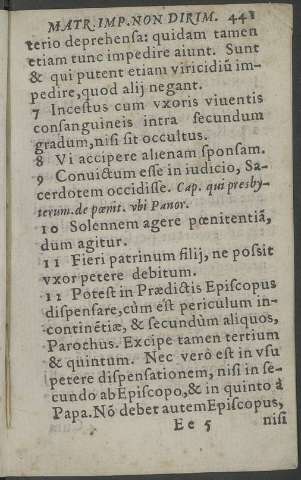 MATR. IMP. NON DIRIM. 441
terio deprehensa: quidam tamen
etiam tunc impedire aiunt. Sunt
& qui putent etiam viricidiũ im-
pedire, quod alij negant.
7 Incestus cum vxoris viuentis
consanguineis intra secundum
gradum, nisi sit occultus.
8 Vi accipere alienam sponsam.
9 Conuictum esse in iudicio, Sa-
cerdotem occidisse. Cap. qui presby-
terum. de pœnit. vbi Panor.
10 Solennem agere pœnitentiã,
dum agitur.
11 Fieri patrinum filij, ne possit
vxor petere debitum.
11 Potest in Prædictis Episcopus
dispensare, cùm est periculum in-
continẽtiæ, & secundùm aliquos,
Parochus. Excipe tamen tertium
& quintum. Nec verò est in vsu
petere dispensationem, nisi in se-
cundo ab Episcopo, & in quinto à
Papa. Nõ debet autem Episcopus,
Ee 5 nisi